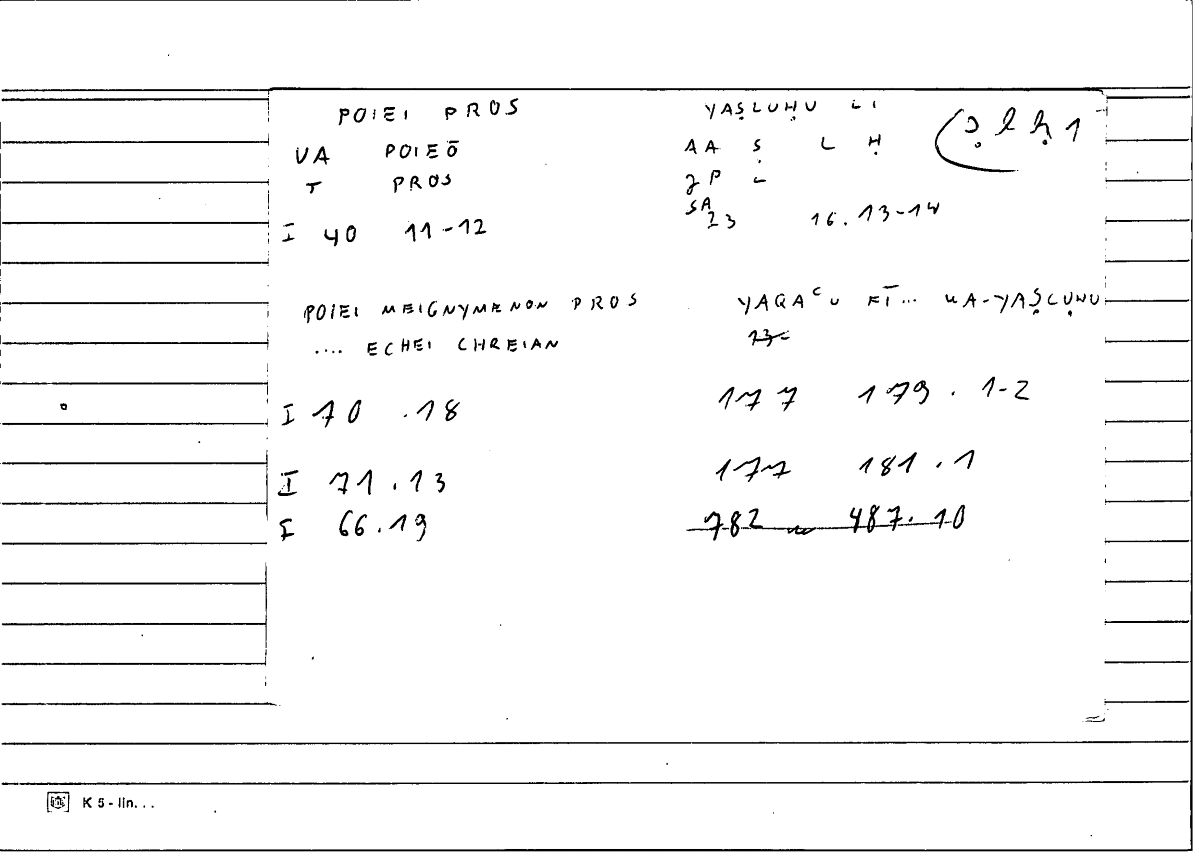 POIEI PROS YAṢLUḤU LI (ṣ l ḥ 1
UA POIEŌ AA Ṣ L Ḥ
T PROS JP L
I 40 11-12 SA 23 16.13-14
POIEI MEIGNYMENON PROS YAQAᶜU FĪ... UA-YAṢLUḤU
.... ECHEI CHREIAN
I 70 .18 177 179.1-2
I 71.13 177 181.1
I 66.19 782 487.10
K 5 - lin. . .